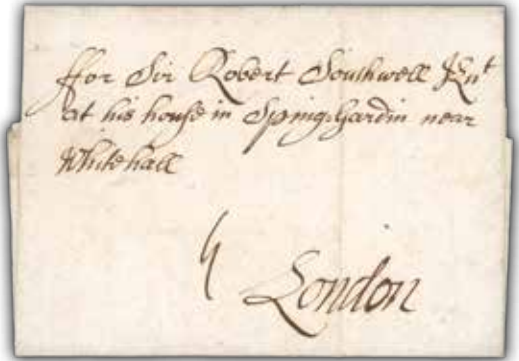 ffor Sir Robert Southwell Knt
at his house in Spring gardin near
Whitehall
London